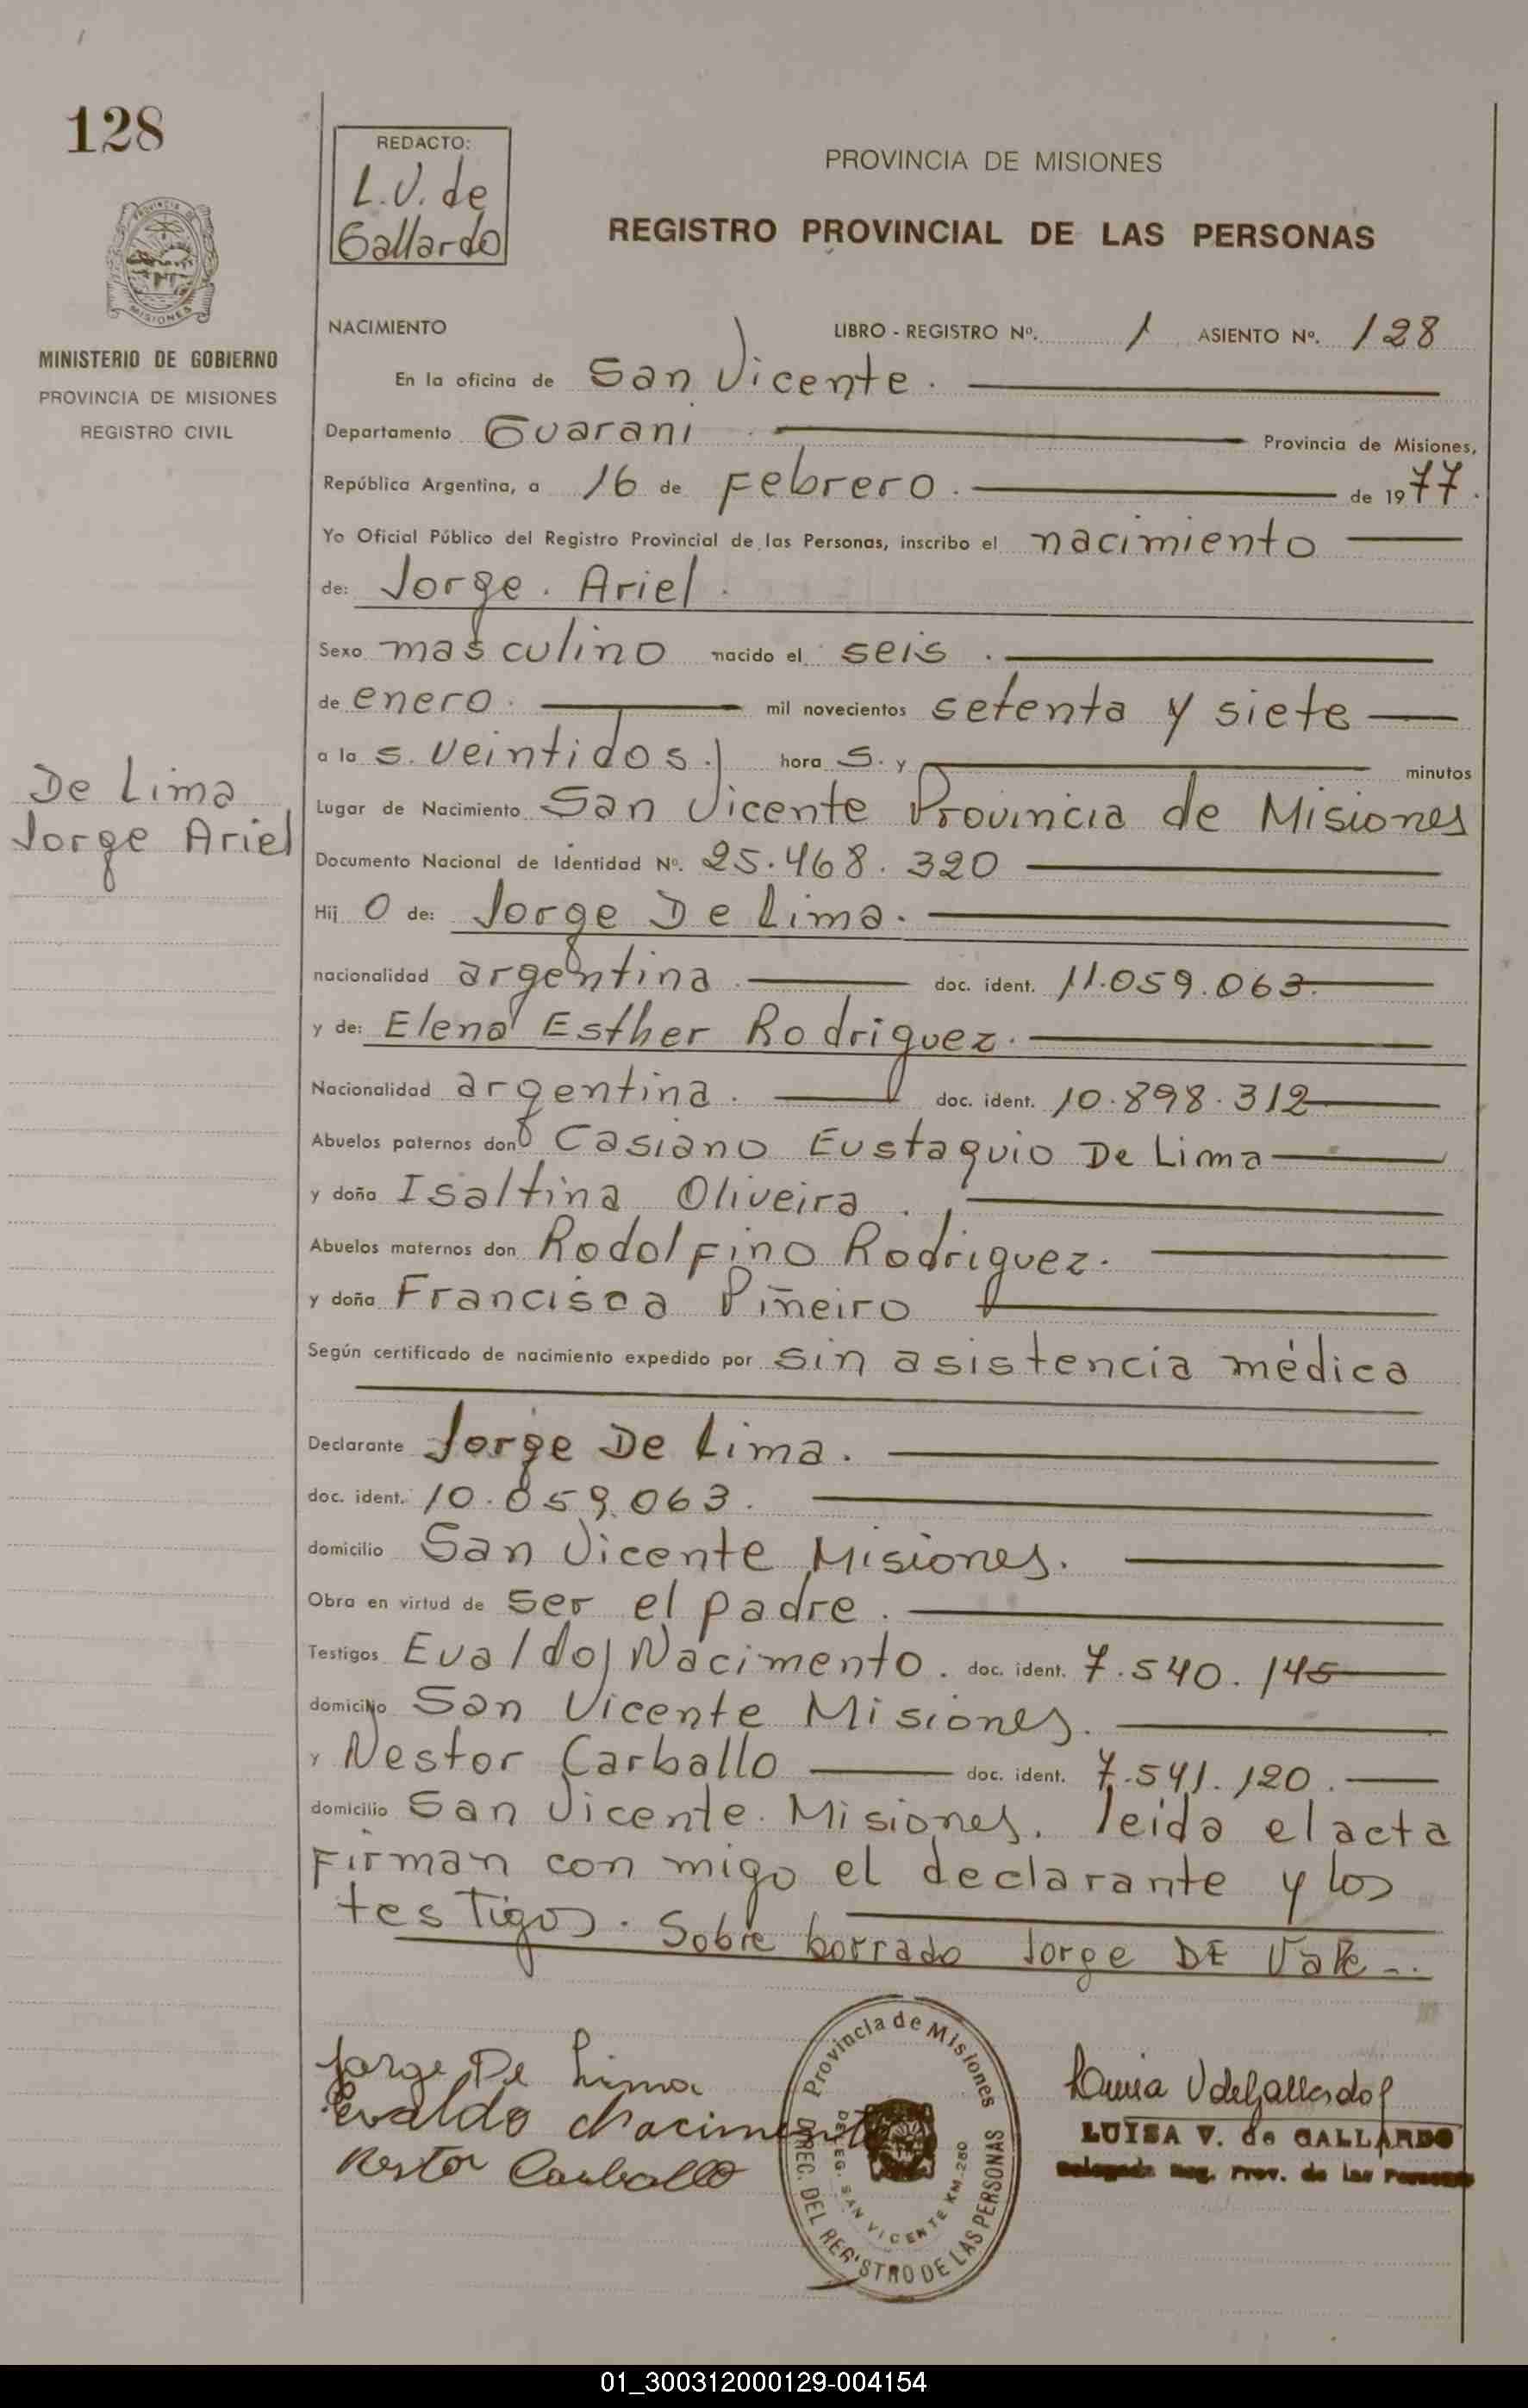 128
REDACTO:
L.V. de
Gallardo
PROVINCIA DE MISIONES
REGISTRO PROVINCIAL DE LAS PERSONAS
PROVINCIA DE
MISIONES
MINISTERIO DE GOBIERNO
PROVINCIA DE MISIONES
REGISTRO CIVIL
NACIMIENTO LIBRO - REGISTRO Nº. 1 ASIENTO Nº. 128
En la oficina de San Vicente.
Departamento Guarani Provincia de Misiones,
República Argentina, a 16 de Febrero. de 1977.
Yo Oficial Público del Registro Provincial de las Personas, inscribo el nacimiento
de: Jorge. Ariel.
Sexo masculino nacido el seis.
de enero. mil novecientos setenta y siete
a la s. veintidos. hora s. y minutos
De Lima
Jorge Ariel
Lugar de Nacimiento San Vicente Provincia de Misiones
Documento Nacional de Identidad Nº. 25.468.320
Hij o de: Jorge De Lima.
nacionalidad argentina. doc. ident. 11.059.063.
y de: Elena Esther Rodriguez.
Nacionalidad argentina. doc. ident. 10.898.312
Abuelos paternos don Casiano Eustaquio De Lima
y doña Isaltina Oliveira.
Abuelos maternos don Rodolfino Rodriguez.
y doña Francisca Piñeiro
Según certificado de nacimiento expedido por sin asistencia médica
Declarante Jorge De Lima.
doc. ident. 10.059.063.
domicilio San Vicente Misiones.
Obra en virtud de ser el padre.
Testigos Evaldo Nacimento. doc. ident. 7.540.145
domicilio San Vicente Misiones.
y Nestor Carballo doc. ident. 7.541.120.
domicilio San Vicente. Misiones. leida el acta
firman con migo el declarante y los
testigos. Sobre borrado Jorge DE Vale-.
Jorge De Lima
Evaldo Nacimento
Nestor Carballo
Provincia de Misiones
DIREC. DEL REGISTRO DE LAS PERSONAS
DELEG. SAN VICENTE KM. 280
Luisa V de Gallardo
LUISA V. de GALLARDO
Delegada Reg. Prov. de las Personas
01_300312000129-004154